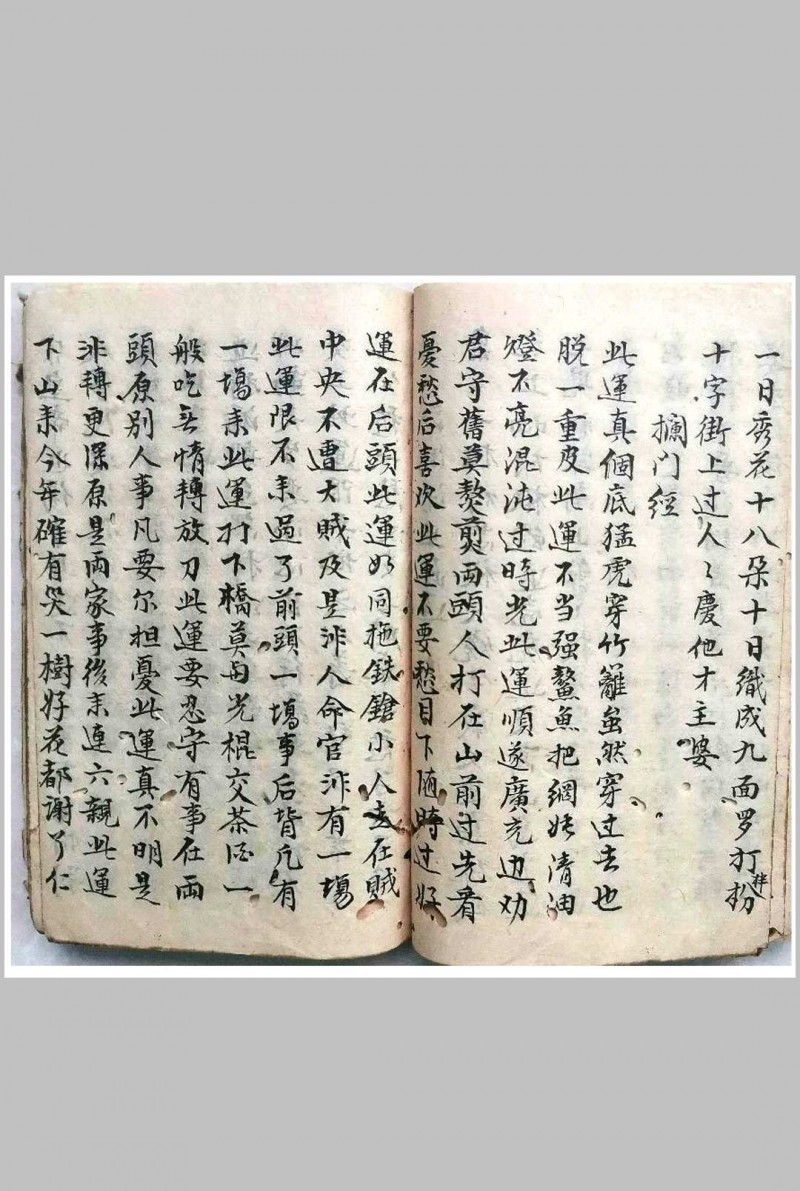 一日秀花十八朵十日織成九面罗打扮
十字街上过人〻慶他才主婆
攔门经
此運真個底猛虎穿竹籬虽然穿过去也
脱一重皮此運不当强鰲魚把網 清油
燈不亮混沌过時光此運順遂廣充边劝
君守舊莫熬煎两頭人打在山前过先看
憂愁后喜欢此運不要愁目下随時过好
運在后頭此運如同拖鉄鎗小人走在賊
中央不遭大賊及是泎人命官泎有一塲
此運限不耒過了前頭一塲事后背凢有
一塲耒此運打下橋莫与光棍交茶酒一
般吃无情轉放刀此運要忍守有事在両
頭原别人事凡要尔担憂此運真不明是
泎轉更深原是両家事後耒連六親此運
下山耒今年確有哭一樹好花都谢了仁